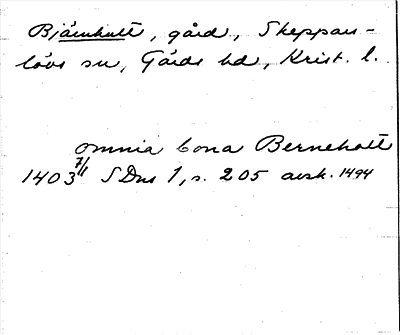 Bjärnhult, gård, Skeppars-
lövs sn, Gärds hd, Krist. l.
omnia bona Berneholte
1403 7/11 SDns 1, s. 205 avsk. 1494